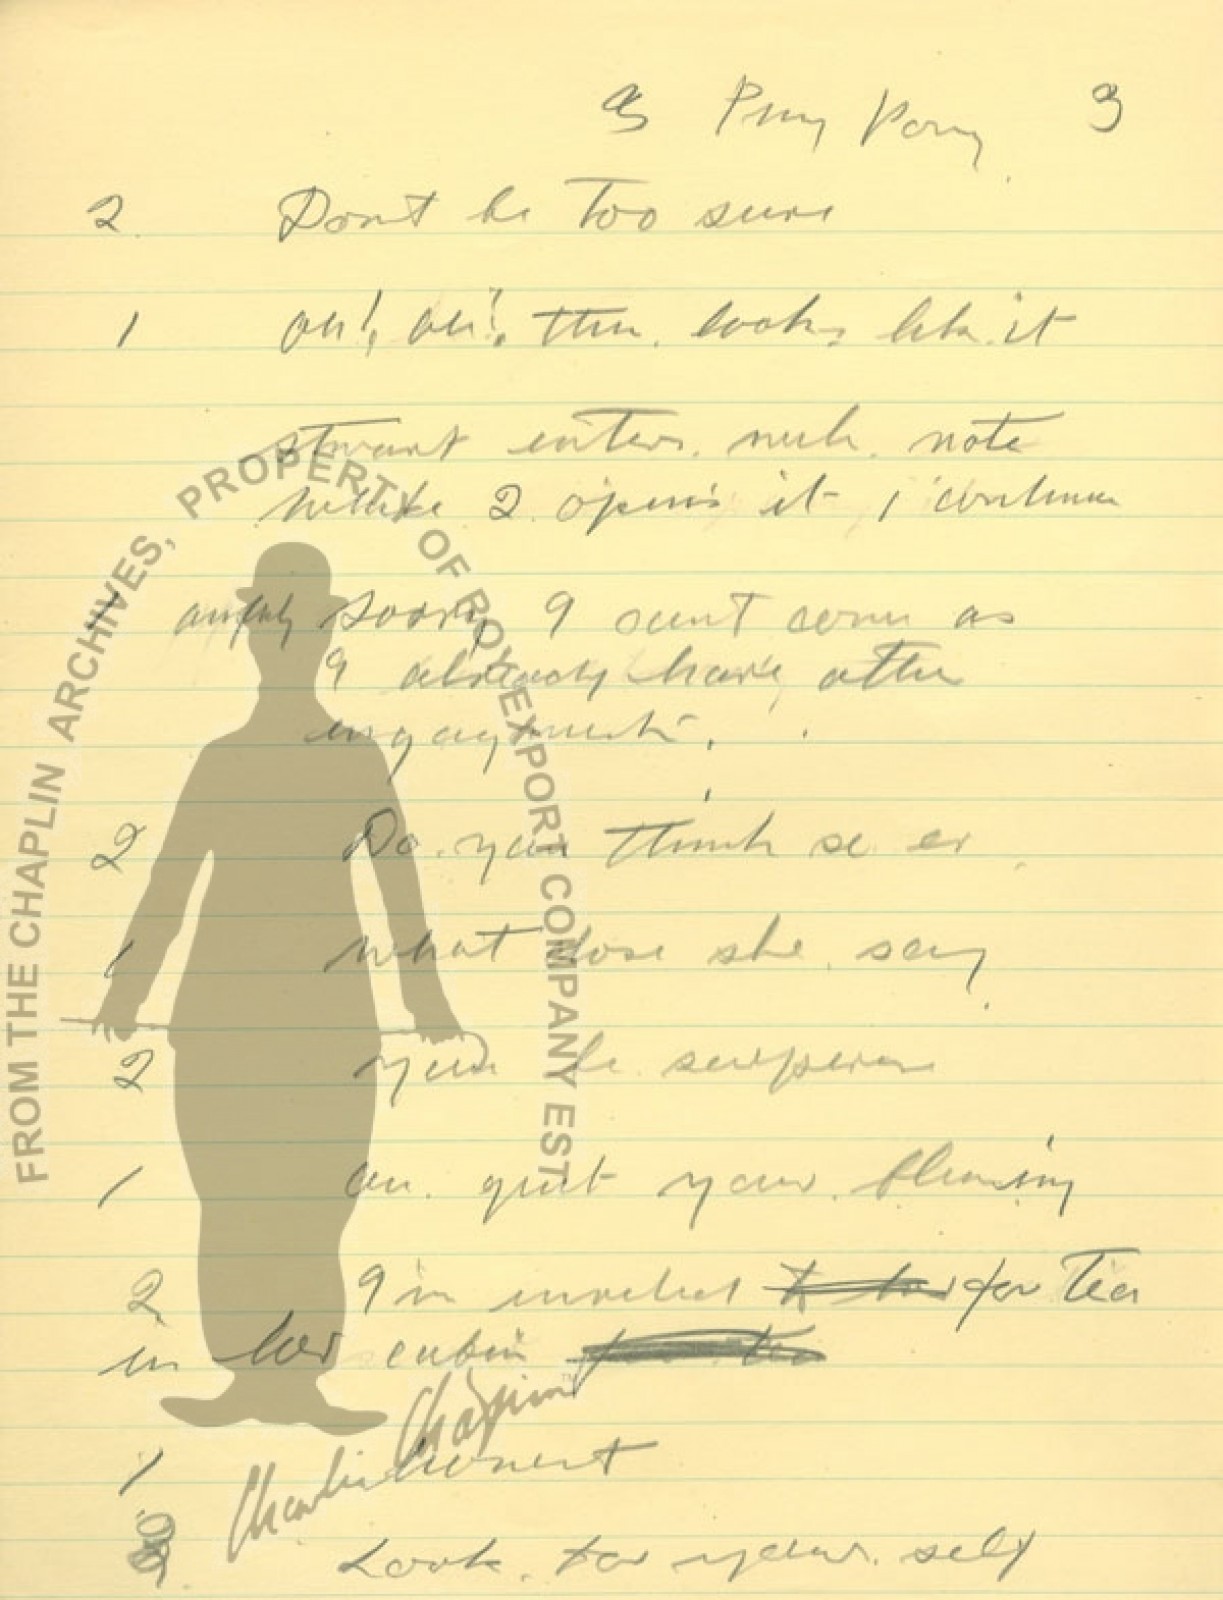 3 Ping Pong 3
2. Dont be Too sure
1 oh!, oh!, then looks like it
stwart enters with note
while 2 opens it 1 continues
1 awfuly sorry I cant come as
I already have other
engagments.
2 Do you think se er
1 what dose she say
2 your be surprise
1 aw quit your
2 I im invited for Tea
in her cabin
1 honest
2 Look for your self
FROM THE CHAPLIN ARCHIVES, PROPERTY OF ROY EXPORT COMPANY EST
Charlie Chaplin
TM